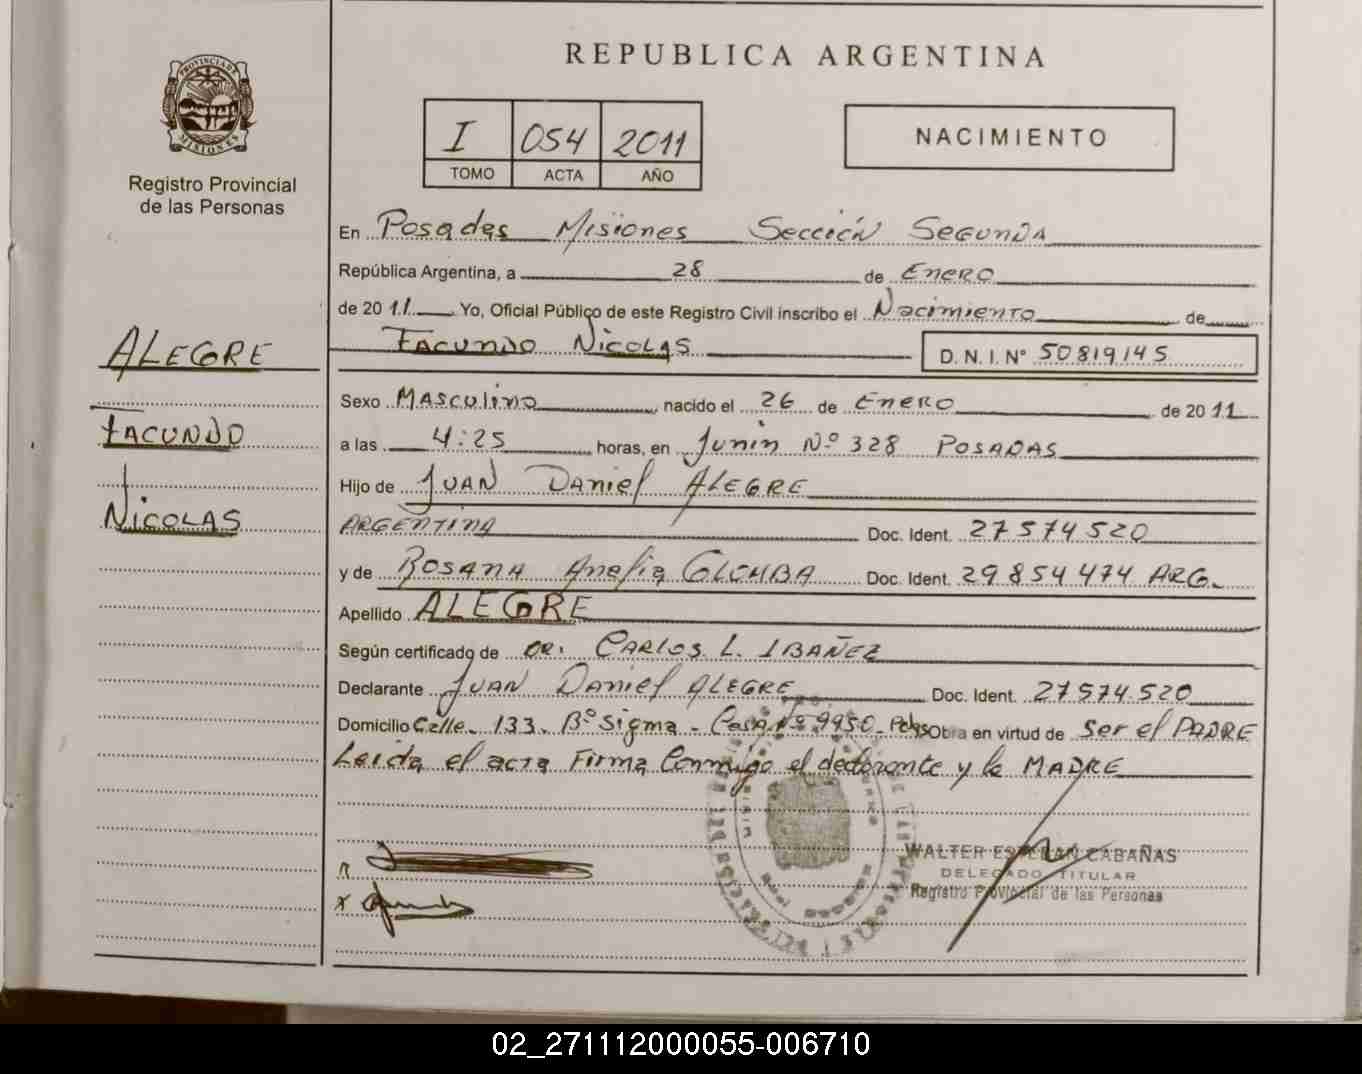 PROVINCIA DE
MISIONES
Registro Provincial
de las Personas
ALEGRE
FACUNDO
NICOLAS
REPUBLICA ARGENTINA
I 054 2011
TOMO ACTA AÑO
NACIMIENTO
En Posadas Misiones Sección Segunda
República Argentina, a 28 de Enero
de 2011 Yo, Oficial Público de este Registro Civil inscribo el Nacimiento de
Facundo Nicolas D. N. I. Nº 50819145
Sexo Masculino nacido el 26 de Enero de 2011
a las 4:25 horas, en Junin Nº 328 Posadas
Hijo de Juan Daniel Alegre
Argentina Doc. Ident. 27574520
y de Rosana Anelia Doc. Ident. 29854474 Arg.
Apellido ALEGRE
Según certificado de DR. Carlos L. Ibañez
Declarante Juan Daniel Alegre Doc. Ident. 27574.520
Domicilio Calle 133. Bº Sigma - Casa Nº 9950 - Pdas Obra en virtud de Ser el Padre
Leida el acta Firma Conmigo el declarante y la MADRE
WALTER ESTEBAN CABAÑAS
DELEGADO TITULAR
Registro Provincial de las Personas
02_271112000055-006710